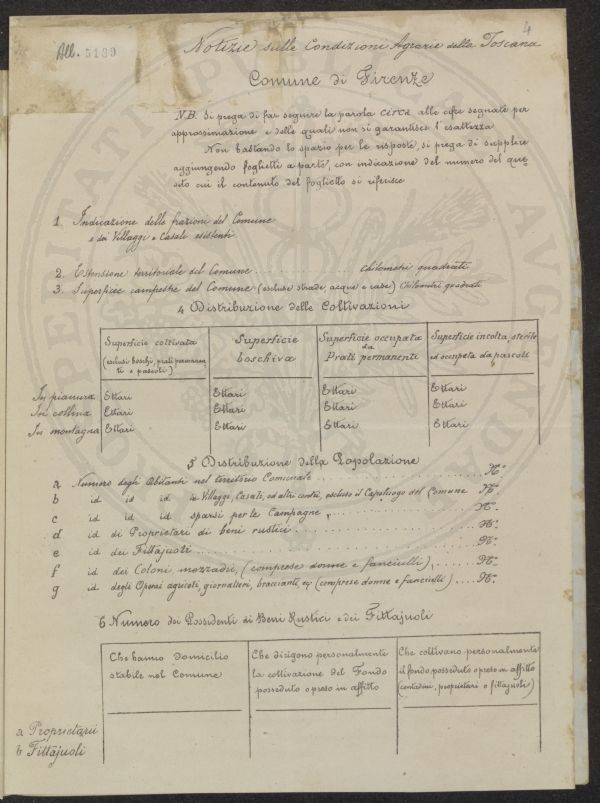 4
All. 5139
Notizie sulle Condizioni Agrarie della Toscana
Comune di Firenze
N.B. Si prega di far seguire la parola circa alle cifre segnate per
approssimazione e delle quali non si garantisce l'esattezza
Non bastando lo spazio per le risposte, si prega di supplire
aggiungendo foglietti a parte, con indicazione del numero del que
sito cui il contenuto del foglietto si riferisce
1. Indicazione delle frazioni del Comune
e dei Villaggi e Casali esistenti
2. Estensione territoriale del Comune ............ chilometri quadrati
3. Superficie campestre del Comune (escluse strade, acque e case) Chilometri quadrati
4 Distribuzione delle Coltivazioni
Superficie coltivata
(esclusi boschi, prati permanen
ti e pascoli)
Superficie
boschiva
Superficie occupata
da
Prati permanenti
Superficie incolta, sterile
ed occupata da pascoli
In pianura Ettari Ettari Ettari Ettari
In collina Ettari Ettari Ettari Ettari
In montagna Ettari Ettari Ettari Ettari
5 Distribuzione della Popolazione
a Numero degli Abitanti nel territorio Comunale ............ N°
b id id id in Villaggi, Casali, ed altri centri, escluso il Capoluogo del Comune N°
c id id id sparsi per le Campagne ............ N°
d id di Proprietari di beni rustici ............ N°
e id dei Fittajuoli ............ N°
f id dei Coloni mezzadri, (comprese donne e fanciulli) .... N°
g id degli Operai agricoli, giornalieri, braccianti, (comprese donne e fanciulli) .... N°
6 Numero dei Possidenti di Beni Rustici e dei Fittajuoli
Che hanno domicilio
stabile nel Comune
Che dirigono personalmente
la coltivazione del Fondo
posseduto o preso in affitto
Che coltivano personalmente
il fondo posseduto o preso in affitto
(contadini, proprietari o fittajuoli)
a Proprietarii
b Fittajuoli